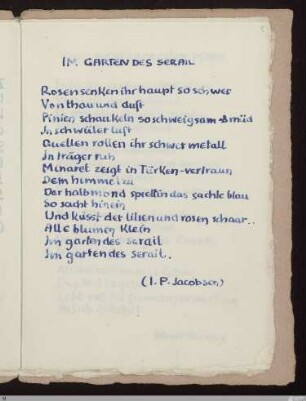 IM GARTEN DES SERAIL
Rosen senken ihr haupt so schwer
Von thau und duft
Pinien schaukeln so schweigsam-&müd
In schwüler luft
Quellen rollen ihr schwer metall
In träger ruh
Minaret zeigt in Türken-vertraun
Dem himmel zu
Der halbmond spreitin das sachte blau
So sacht hinein
Und küsst der lilien und rosen schaar..
Alle blumen klein
Im garten des serail
Im garten des serail..
(I. P. Jacobsen)